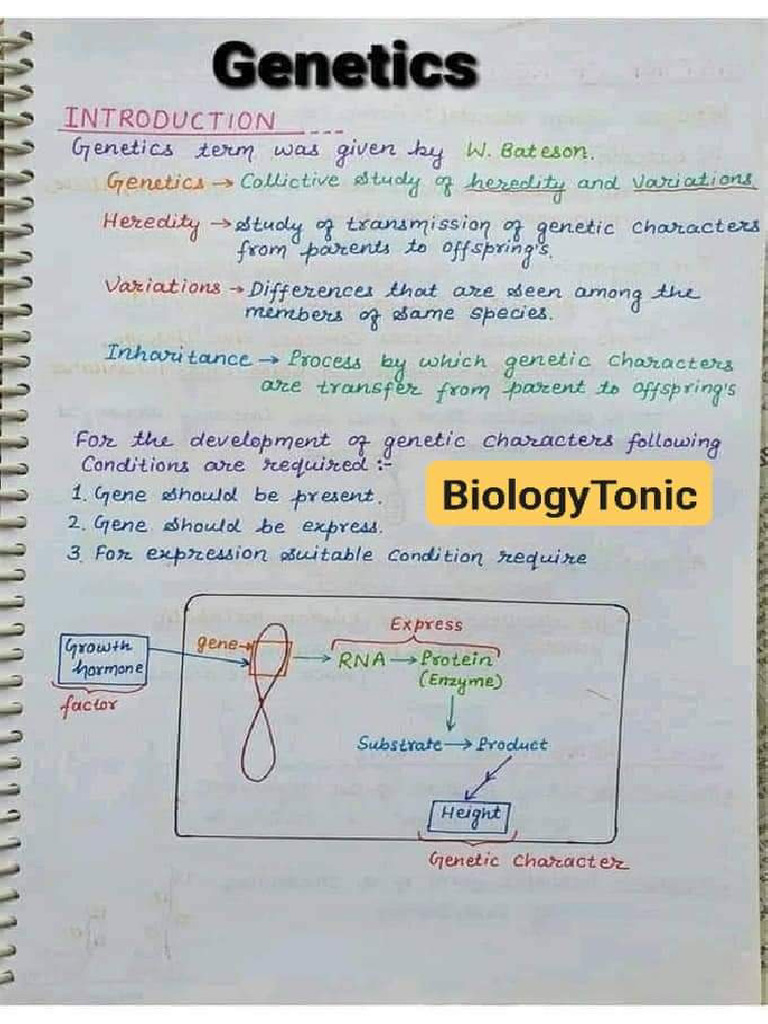 Genetics
INTRODUCTION
Genetics term was given by W. Bateson.
Genetics → Collictive study of heredity and variations
Heredity → study of transmission of genetic characters
from parents to offspring's.
Variations → Differences that are seen among the
members of same species.
Inharitance → Process by which genetic characters
are transfer from parent to offspring's
For the development of genetic characters following
Conditions are required :-
BiologyTonic
1. Gene should be present.
2. Gene should be express.
3. For expression suitable condition require
Express
Growth
hormone
factor
gene →
RNA → Protein
(Enzyme)
Substrate → Product
Height
Genetic Character